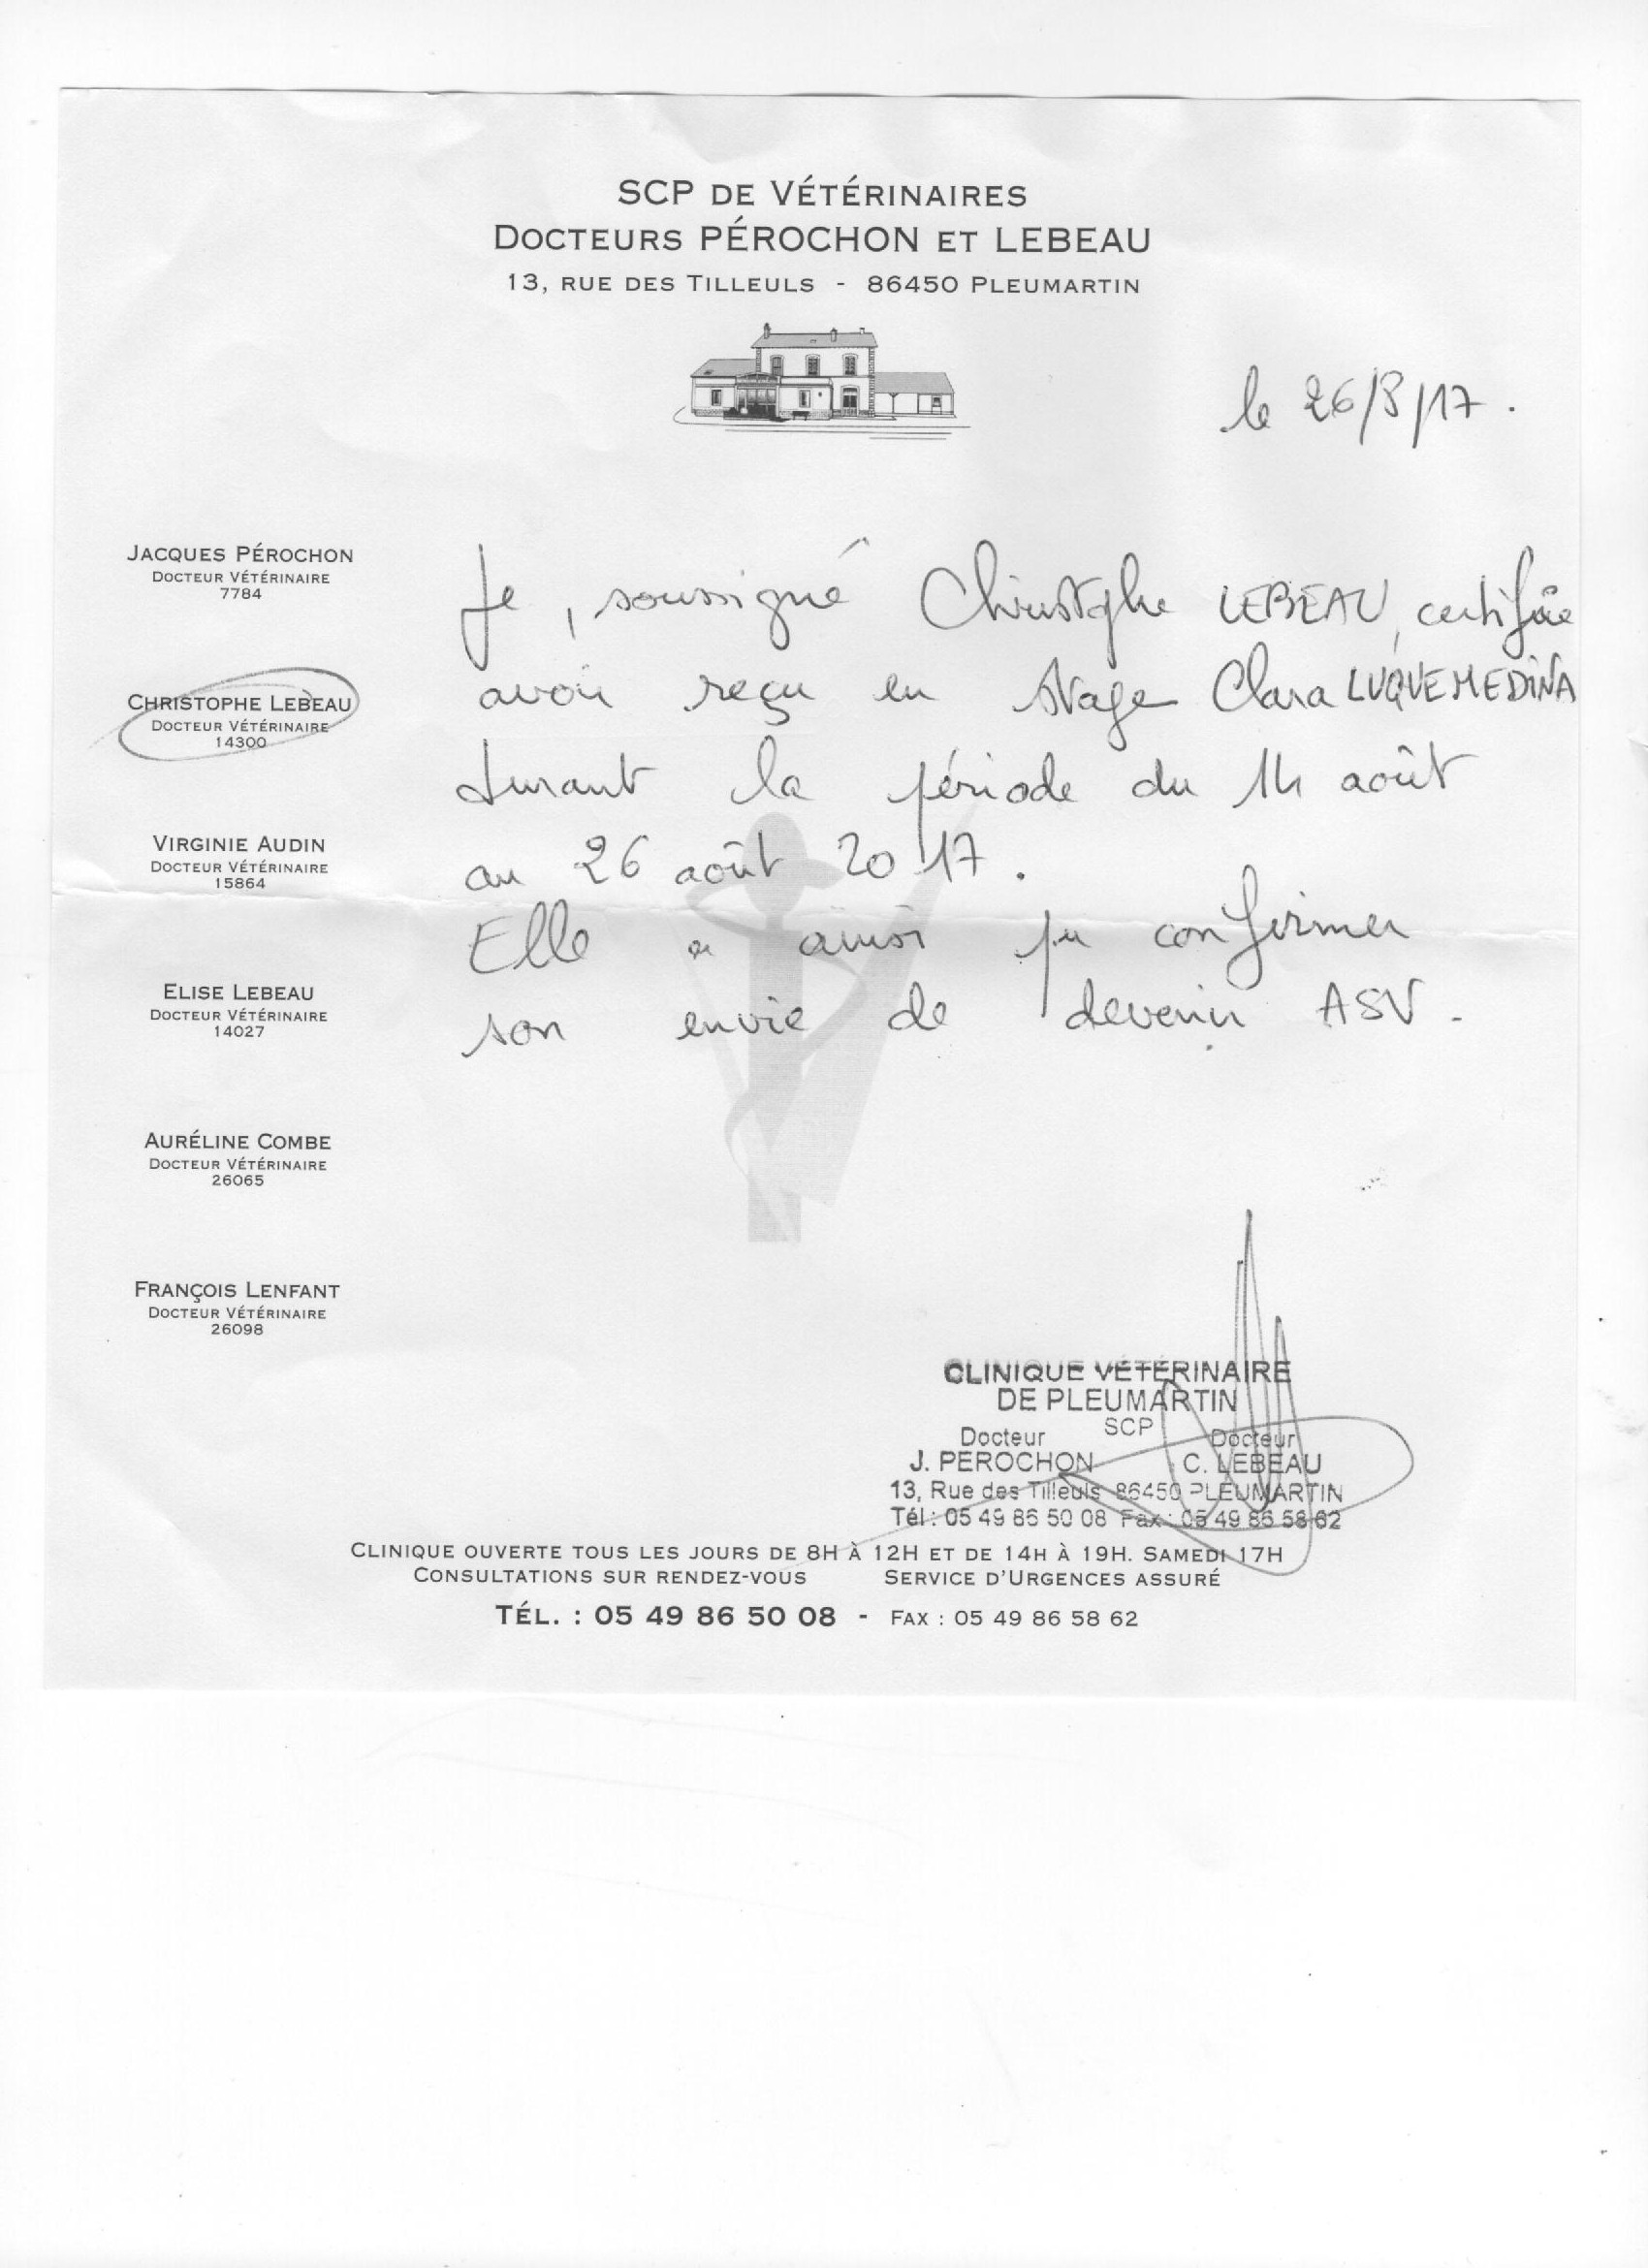 SCP DE VÉTÉRINAIRES
DOCTEURS PÉROCHON ET LEBEAU
13, RUE DES TILLEULS - 86450 PLEUMARTIN
le 26/8/17.
JACQUES PÉROCHON
DOCTEUR VÉTÉRINAIRE
7784
CHRISTOPHE LEBEAU
DOCTEUR VÉTÉRINAIRE
14300
VIRGINIE AUDIN
DOCTEUR VÉTÉRINAIRE
15864
ELISE LEBEAU
DOCTEUR VÉTÉRINAIRE
14027
AURÉLINE COMBE
DOCTEUR VÉTÉRINAIRE
26065
FRANÇOIS LENFANT
DOCTEUR VÉTÉRINAIRE
26098
Je, soussigné Christophe LEBEAU, certifie
avoir reçu en stage Clara LUQUE MEDINA
durant la période du 14 août
au 26 août 2017.
Elle a ainsi pu confirmer
son envie de devenir ASV.
CLINIQUE VÉTÉRINAIRE
DE PLEUMARTIN
SCP
Docteur Docteur
J. PEROCHON C. LEBEAU
13, Rue des Tilleuls 86450 PLEUMARTIN
Tél : 05 49 86 50 08 Fax : 05 49 86 58 62
CLINIQUE OUVERTE TOUS LES JOURS DE 8H À 12H ET DE 14H À 19H. SAMEDI 17H
CONSULTATIONS SUR RENDEZ-VOUS SERVICE D'URGENCES ASSURÉ
TÉL. : 05 49 86 50 08 - FAX : 05 49 86 58 62